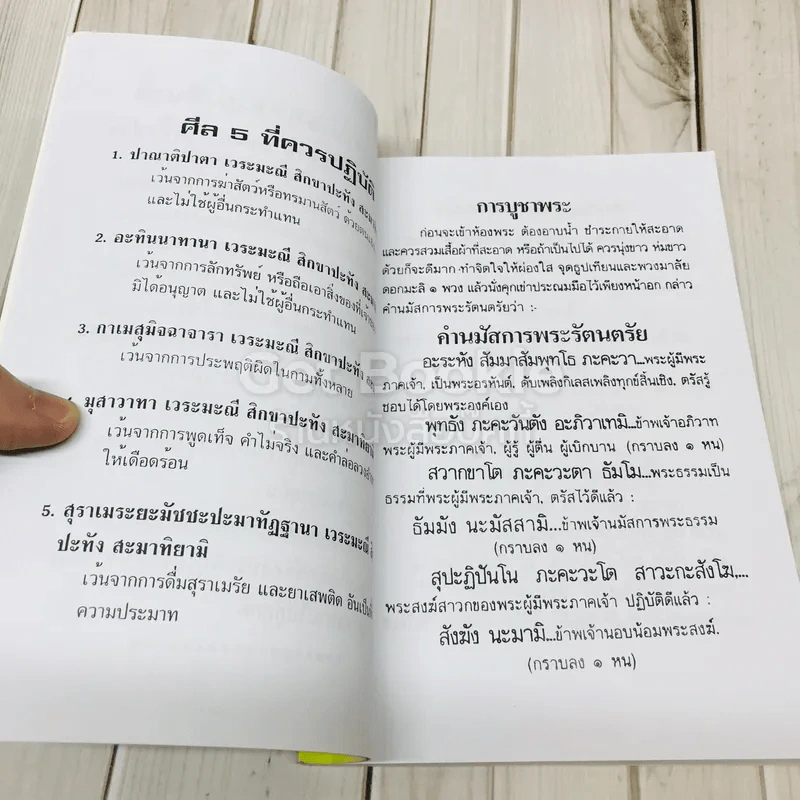 ศีล 5 ที่ควรปฏิบัติ
1. ปาณาติปาตา เวระมะณี สิกขาปะทัง
เว้นจากการฆ่าสัตว์หรือทรมานสัตว์ ด้วยตนเอง
และไม่ใช้ผู้อื่นกระทำแทน
2. อะทินนาทานา เวระมะณี สิกขาปะทัง
เว้นจากการลักทรัพย์ หรือถือเอาสิ่งของที่
มิได้อนุญาต และไม่ใช้ผู้อื่นกระทำแทน
3. กาเมสุมิจฉาจารา เวระมะณี สิกขาปะทัง
เว้นจากการประพฤติผิดในกามทั้งหลาย
มุสาวาทา เวระมะณี สิกขาปะทัง
เว้นจากการพูดเท็จ คำไม่จริง และคำล่อลวง
ให้เดือดร้อน
5. สุราเมระยะมัชชะปะมาทัฏฐานา เวระมะณี
ปะทัง สะมาทิยามิ
เว้นจากการดื่มสุราเมรัย และยาเสพติด อันเป็น
ความประมาท
การบูชาพระ
ก่อนจะเข้าห้องพระ ต้องอาบน้ำ ชำระกายให้สะอาด
และควรสวมเสื้อผ้าที่สะอาด หรือถ้าเป็นไปได้ ควรนุ่งขาว ห่มขาว
ด้วยก็จะดีมาก ทำจิตใจให้ผ่องใส จุดธูปเทียนและพวงมาลัย
ดอกมะลิ ๑ พวง แล้วนั่งคุกเข่าประณมมือไว้เพียงหน้าอก กล่าว
คำนมัสการพระรัตนตรัยว่า :-
คำนมัสการพระรัตนตรัย
อะระหัง สัมมาสัมพุทโธ ภะคะวา...พระผู้มีพระ
ภาคเจ้า, เป็นพระอรหันต์, ดับเพลิงกิเลสเพลิงทุกข์สิ้นเชิง, ตรัสรู้
ชอบได้โดยพระองค์เอง
พุทธัง ภะคะวันตัง อะภิวาเทมิ...ข้าพเจ้าอภิวาท
พระผู้มีพระภาคเจ้า, ผู้รู้ ผู้ตื่น ผู้เบิกบาน (กราบลง ๑ หน)
สวากขาโต ภะคะวะตา ธัมโม...พระธรรมเป็น
ธรรมที่พระผู้มีพระภาคเจ้า, ตรัสไว้ดีแล้ว :
ธัมมัง นะมัสสามิ...ข้าพเจ้านมัสการพระธรรม
(กราบลง ๑ หน)
สุปะฏิปันโน ภะคะวะโต สาวะกะสังโฆ,...
พระสงฆ์สาวกของพระผู้มีพระภาคเจ้า ปฏิบัติดีแล้ว :
สังฆัง นะมามิ...ข้าพเจ้านอบน้อมพระสงฆ์.
(กราบลง ๑ หน)